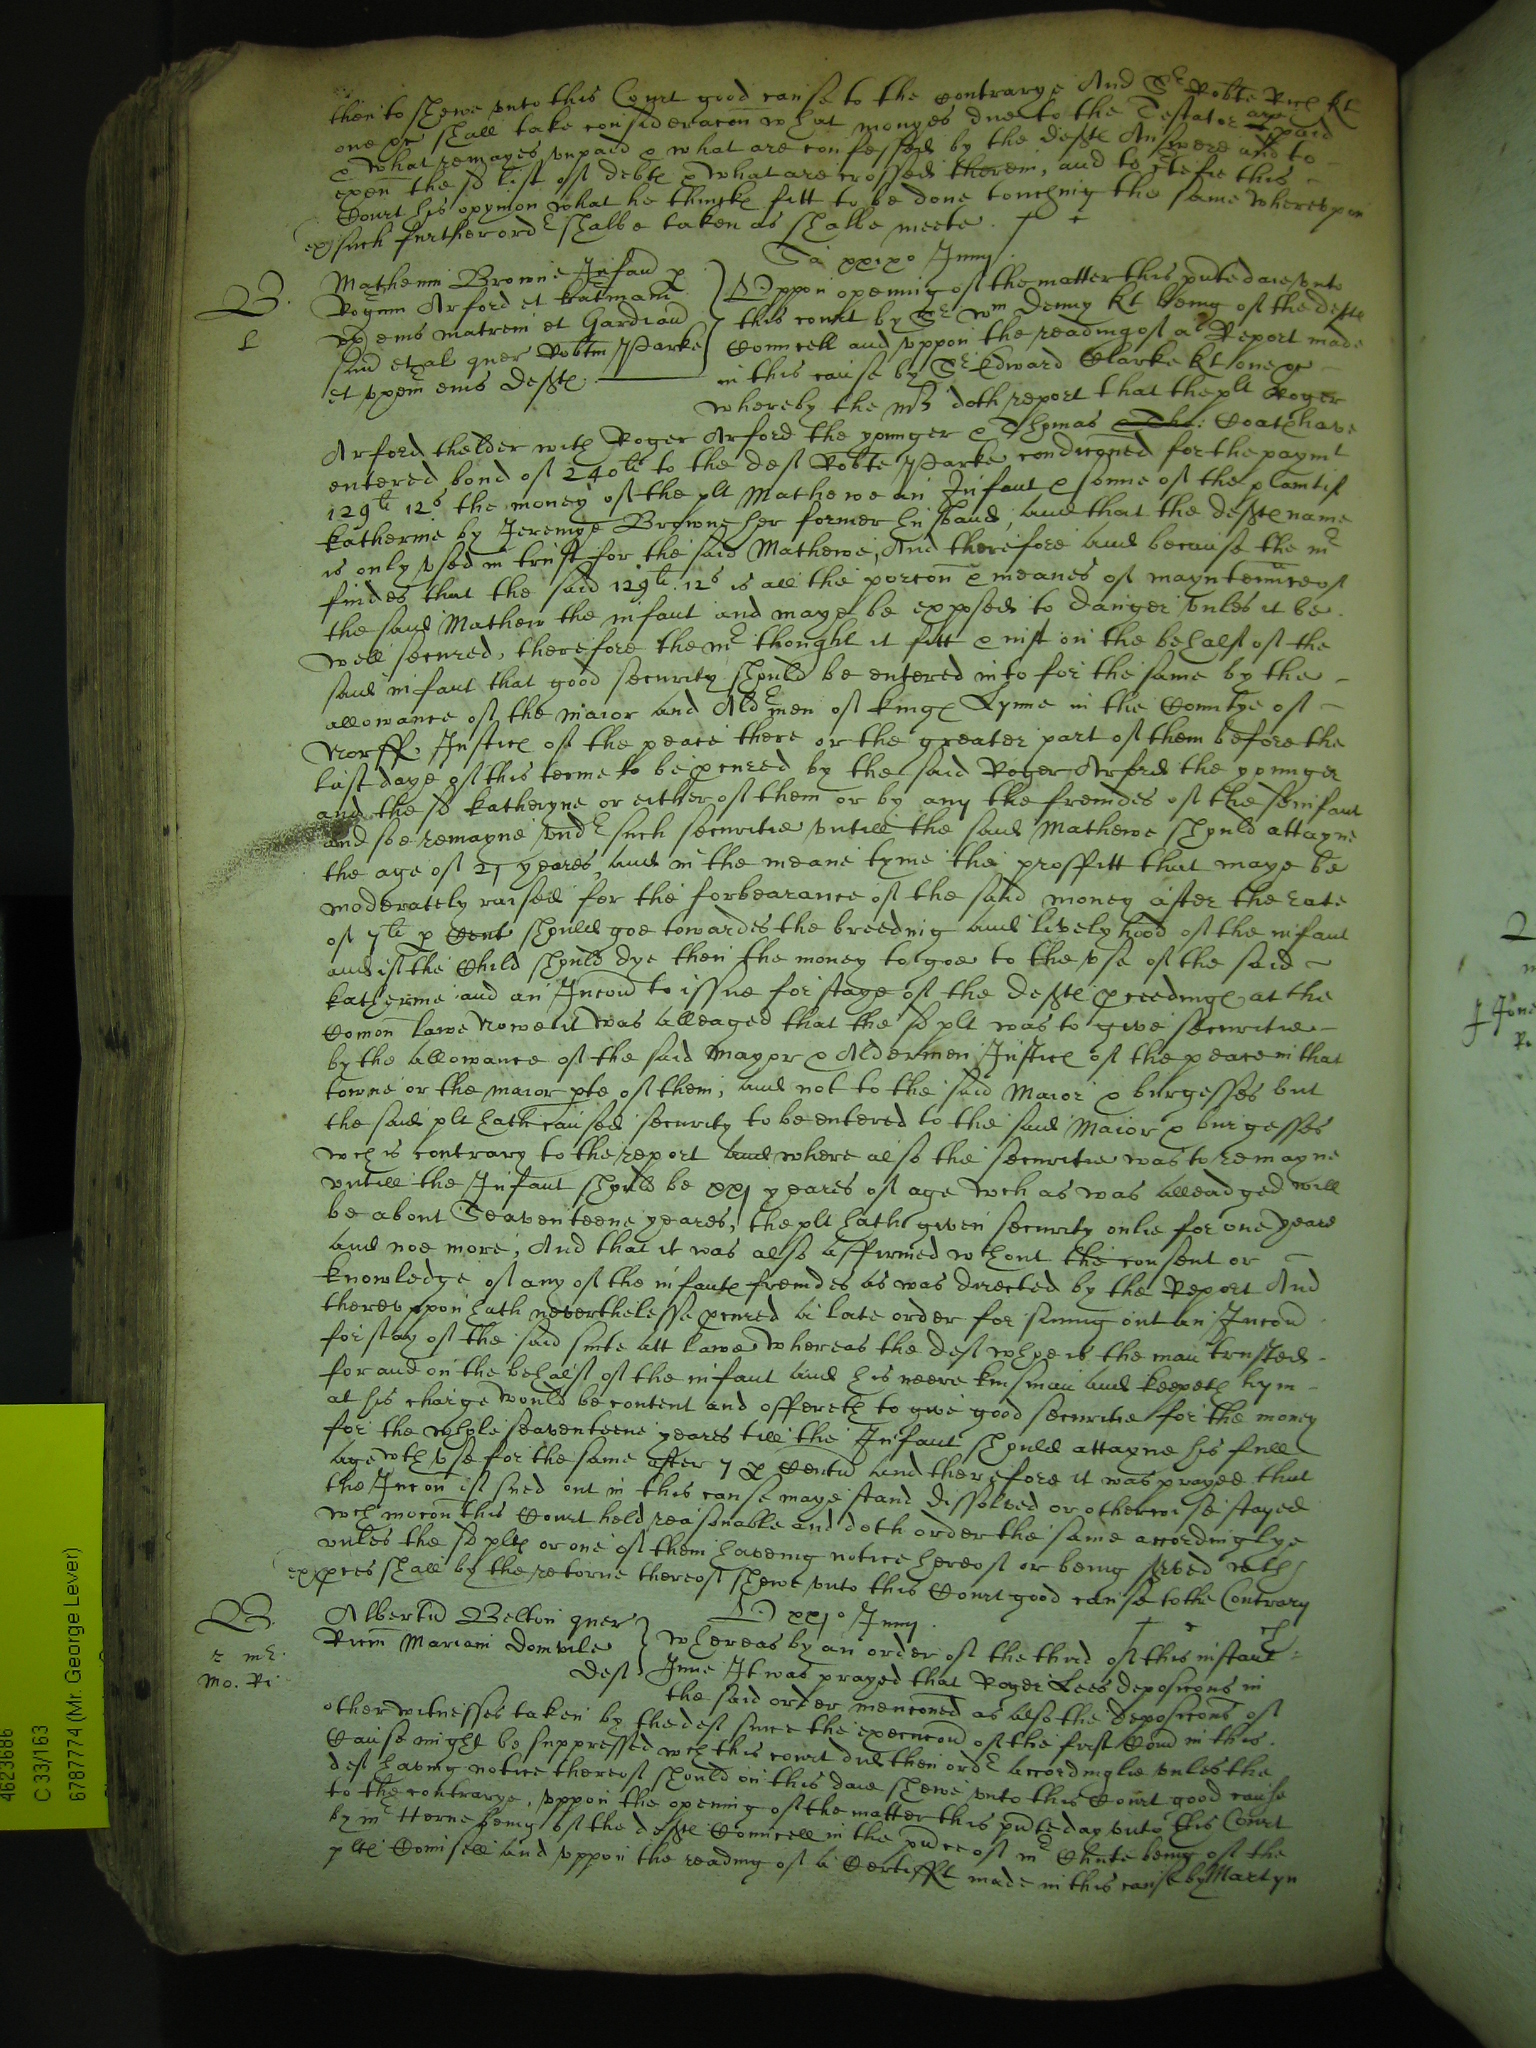 then to shewe unto this Court good cause to the contrarye And Sr Robte Rich kt
one &c shall take consideracon what monyes due to the Testator are paid
& what remaynes unpaid & what are confessed by the defts Answere and to
exam the sd list of debts & what are crossed therein, and to certefie this
Court his opynion what he thincks fitt to be done touching the same whereupon
such further ordr shalbe taken as shalbe meete.
Sa xxixo Junij
B.
Matheum Browne Infan p
Rogerum Arford et katherinam
ux eius matrem et Gardian
suu et al quer Robtm Parke
et uxem eius Defts
Uppon opening of the matter this pnte daie unto
this court by Sr Wm Denny kt being of the defts
Councell and uppon the reading of a Report made
in this cause by Sr Edward Clarke kt one &c
whereby the mr doth report that the plt Roger
Arford thelder with Roger Arford the younger & Thomas Coats have
entered bond of 240li to the deft Robte Parke condiconed for the paymt
129li 12s the money of the plt Mathewe an Infant & sonne of the plaintif
katherine by Jeremye Browne her former husband, and that the defts name
is only used in trust for the said Mathewe, And therefore and because the mr
findes that the said 129li 12s is all the porcon & meanes of mayntennce of
the said Mathew the infant and maye be exposed to danger unles it be
well secured, therefore the mr thought it fitt & iust on the behalf of the
said infant that good security should be entered into for the same by the
allowance of the maior and Aldrmen of kings Lynne in the Countye of
Norff. Justics of the peace there or the greater part of them before the
last daye of this terme to be pcured by the said Roger Arford the younger
and the sd katheryne or either of them or by any the freindes of the sd infant
and soe remayne undr such securitie untill the said Mathewe should attayne
the age of 21 yeares, and in the meane tyme the proffitt that maye be
moderately raised for the forbearance of the said money after the rate
of 7li p Cent should goe towardes the breeding and livelyhood of the infant
and if the Child should dye then the money to goe to the use of the said
katherine and an Iniuncon to issue for staye of the defts pceedings at the
Comon lawe Nowe it was alleaged that the sd plt was to give securitie
by the allowance of the said Mayor & Aldermen Justics of the peace in that
towne or the maior pte of them, and not to the said Maior & burgesses but
the said plt hath caused security to be entered to the said Maior & burgesses
wch is contrary to the report and where also the securitie was to remayne
untill the Infant should be xxj yeares of age wch as was alleadged will
be about Seaventeene yeares, the plt hath given security onlie for one yeare
and noe more, And that it was also affirmed wthout the consent or
knowledge of any of the infants freindes as was directed by the Report And
thereuppon hath neverthelesse pcured a late order for suing out an Iniuncon
for stay of the said suite att lawe whereas the deft whoe is the man trusted
for and on the behalf of the infant and his neere kinsman and keepeth hym
at his charge would be content and offereth to give good securitie for the money
for the whole seaventeene yeares till the Infant should attayne his full
age wth use for the same after 7 p Centu and therefore it was prayed that
the Iniuncon if sued out in this cause maye stand dissolved or otherwise stayed
wch mocon this Court held reasonable and doth order the same accordinglye
unles the sd plts or one of them haveing notice hereof or being served with
pces shall by the retorne thereof shewe unto this Court good cause to the Contrary
B.
Mo. Ri
Albertu Belton quer
Ricum Mariam Domvile
Deft
D xxjo Junij
Whereas by an order of the third of this instant
June It was prayed that Roger Lees deposicons in
the said order mencioned as also the deposicons of
other witnesses taken by the deft since the execucon of the first Comn in this
Cause might be suppressed wch this court did then ordr accordinglie unles the
deft having notice thereof should on this daie shewe unto this Court good cause
to the contrarye, uppon the opening of the matter this pnte day unto this Court
by mr Herne being of the defts Councell in the pnce of mr Chute being of the
plts Councell and uppon the reading of a Certifft made in this cause by Martyn
C 33/163
6787774 (Mr. George Lever)